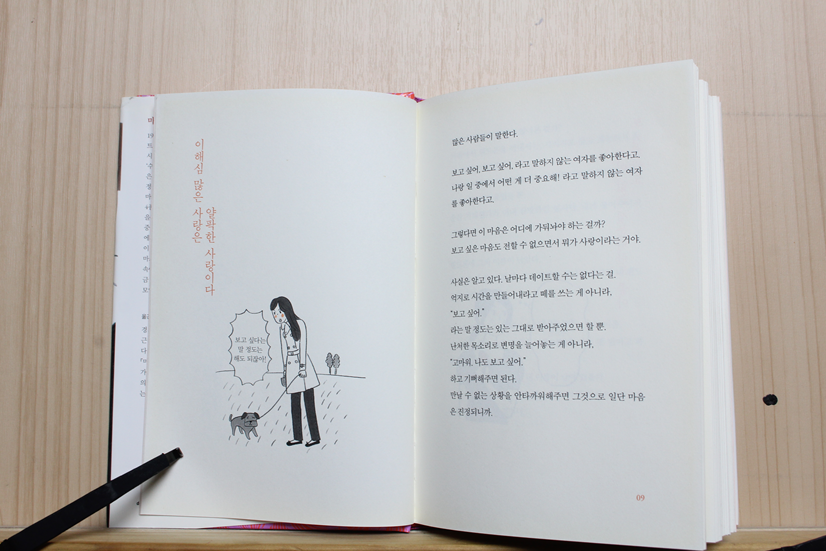 이해심 많은 사랑은
얄팍한 사랑이다
보고 싶다는
말 정도는
해도 되잖아!
많은 사람들이 말한다.
보고 싶어, 보고 싶어, 라고 말하지 않는 여자를 좋아한다고.
나랑 일 중에서 어떤 게 더 중요해! 라고 말하지 않는 여자
를 좋아한다고.
그렇다면 이 마음은 어디에 가둬놔야 하는 걸까?
보고 싶은 마음도 전할 수 없으면서 뭐가 사랑이라는 거야.
사실은 알고 있다. 날마다 데이트할 수는 없다는 걸.
억지로 시간을 만들어내라고 떼를 쓰는 게 아니라,
“보고 싶어.”
라는 말 정도는 있는 그대로 받아주었으면 할 뿐.
난처한 목소리로 변명을 늘어놓는 게 아니라,
“고마워. 나도 보고 싶어.”
하고 기뻐해주면 된다.
만날 수 없는 상황을 안타까워해주면 그것으로 일단 마음
은 진정되니까.
09